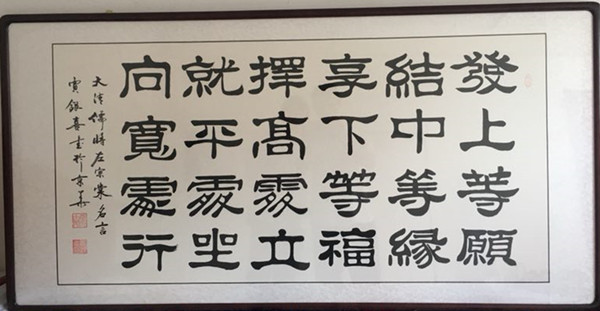 發上等願
結中等緣
享下等福
擇高處立
就平處坐
向寬處行
大清儒將左宗棠名言
賈銀喜書於京華